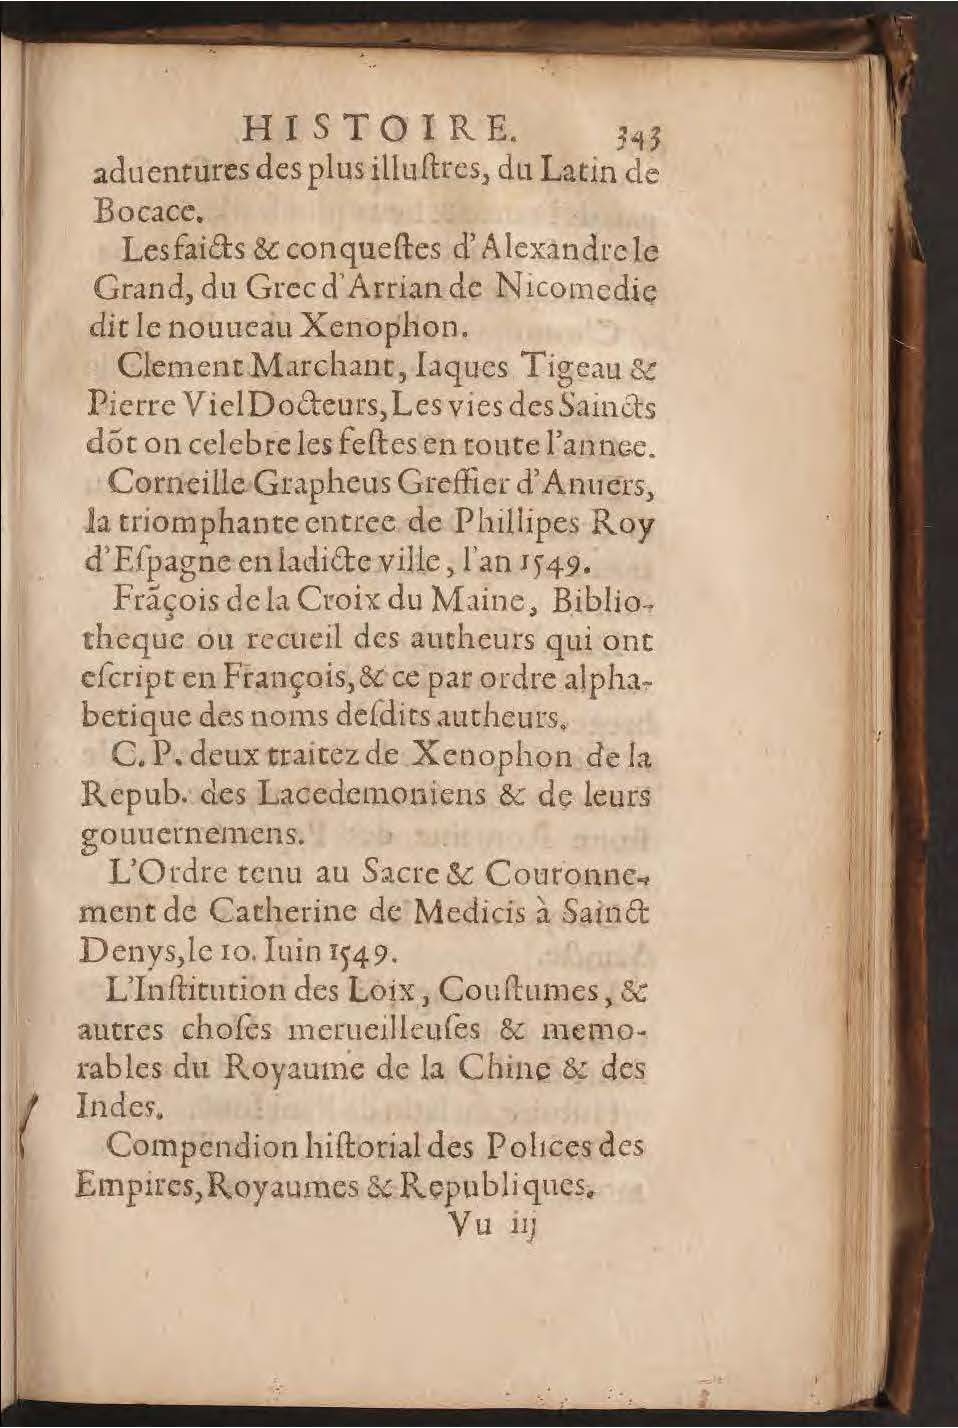 HISTOIRE. 343
aduentures des plus illuſtres, du Latin de
Bocace.
Les faicts & conqueſtes d'Alexandre le
Grand, du Grec d'Arrian de Nicomedie
dit le nouueau Xenophon.
Clement Marchant, Iaques Tigeau &
Pierre Viel Docteurs, Les vies des Saincts
dõt on celebre les feſtes en toute l'annee.
Corneille Grapheus Greffier d'Anuers,
la triomphante entree de Phillipes Roy
d'Eſpagne en ladicte ville, l'an 1549.
Frãçois de la Croix du Maine, Biblio-
theque ou recueil des autheurs qui ont
eſcript en François, & ce par ordre alpha-
betique des noms deſdits autheurs.
C. P. deux traitez de Xenophon de la
Repub. des Lacedemoniens & de leurs
gouuernemens.
L'Ordre tenu au Sacre & Couronne-
ment de Catherine de Medicis à Sainct
Denys, le 10. Iuin 1549.
L'Inſtitution des Loix, Couſtumes, &
autres choſes merueilleuſes & memo-
rables du Royaume de la Chine & des
Indes.
Compendion hiſtorial des Polices des
Empires, Royaumes & Republiques.
Vu iij